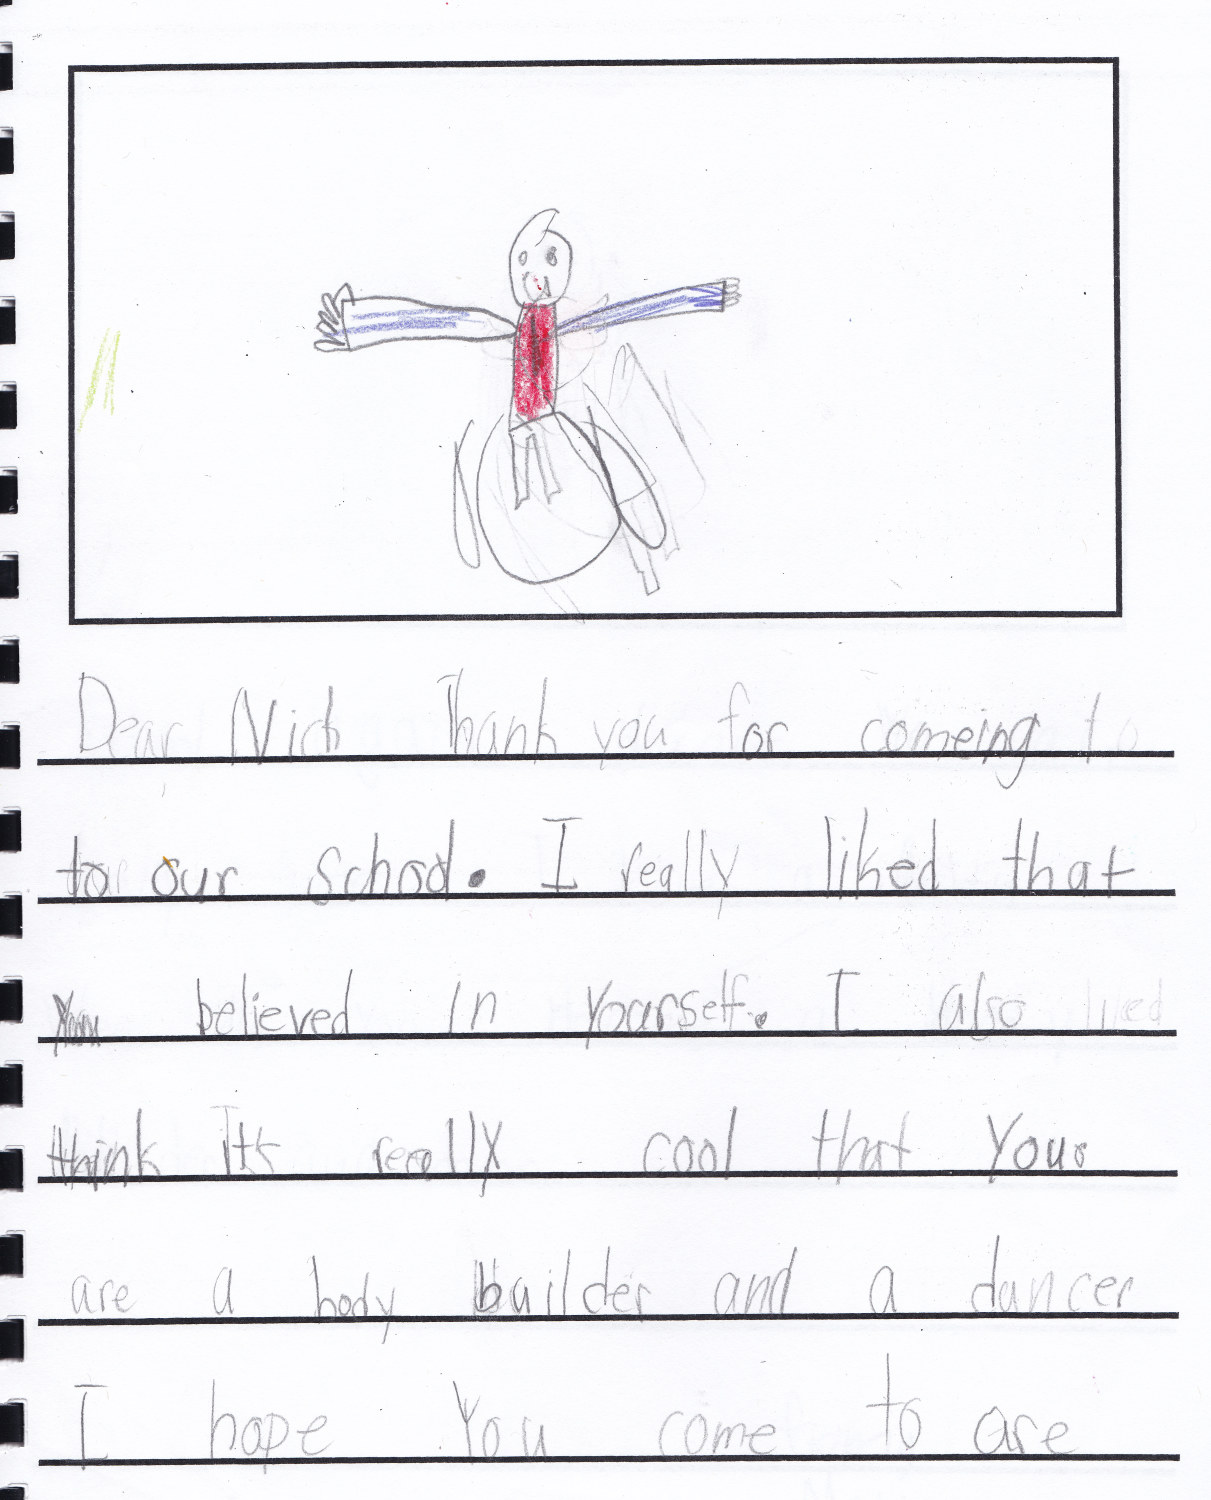 Dear Nick Thank you for comeing to
to our school. I really liked that
you believed in yourself. I also liked
think It's really cool that your
are a body builder and a dancer
I hope You come to are